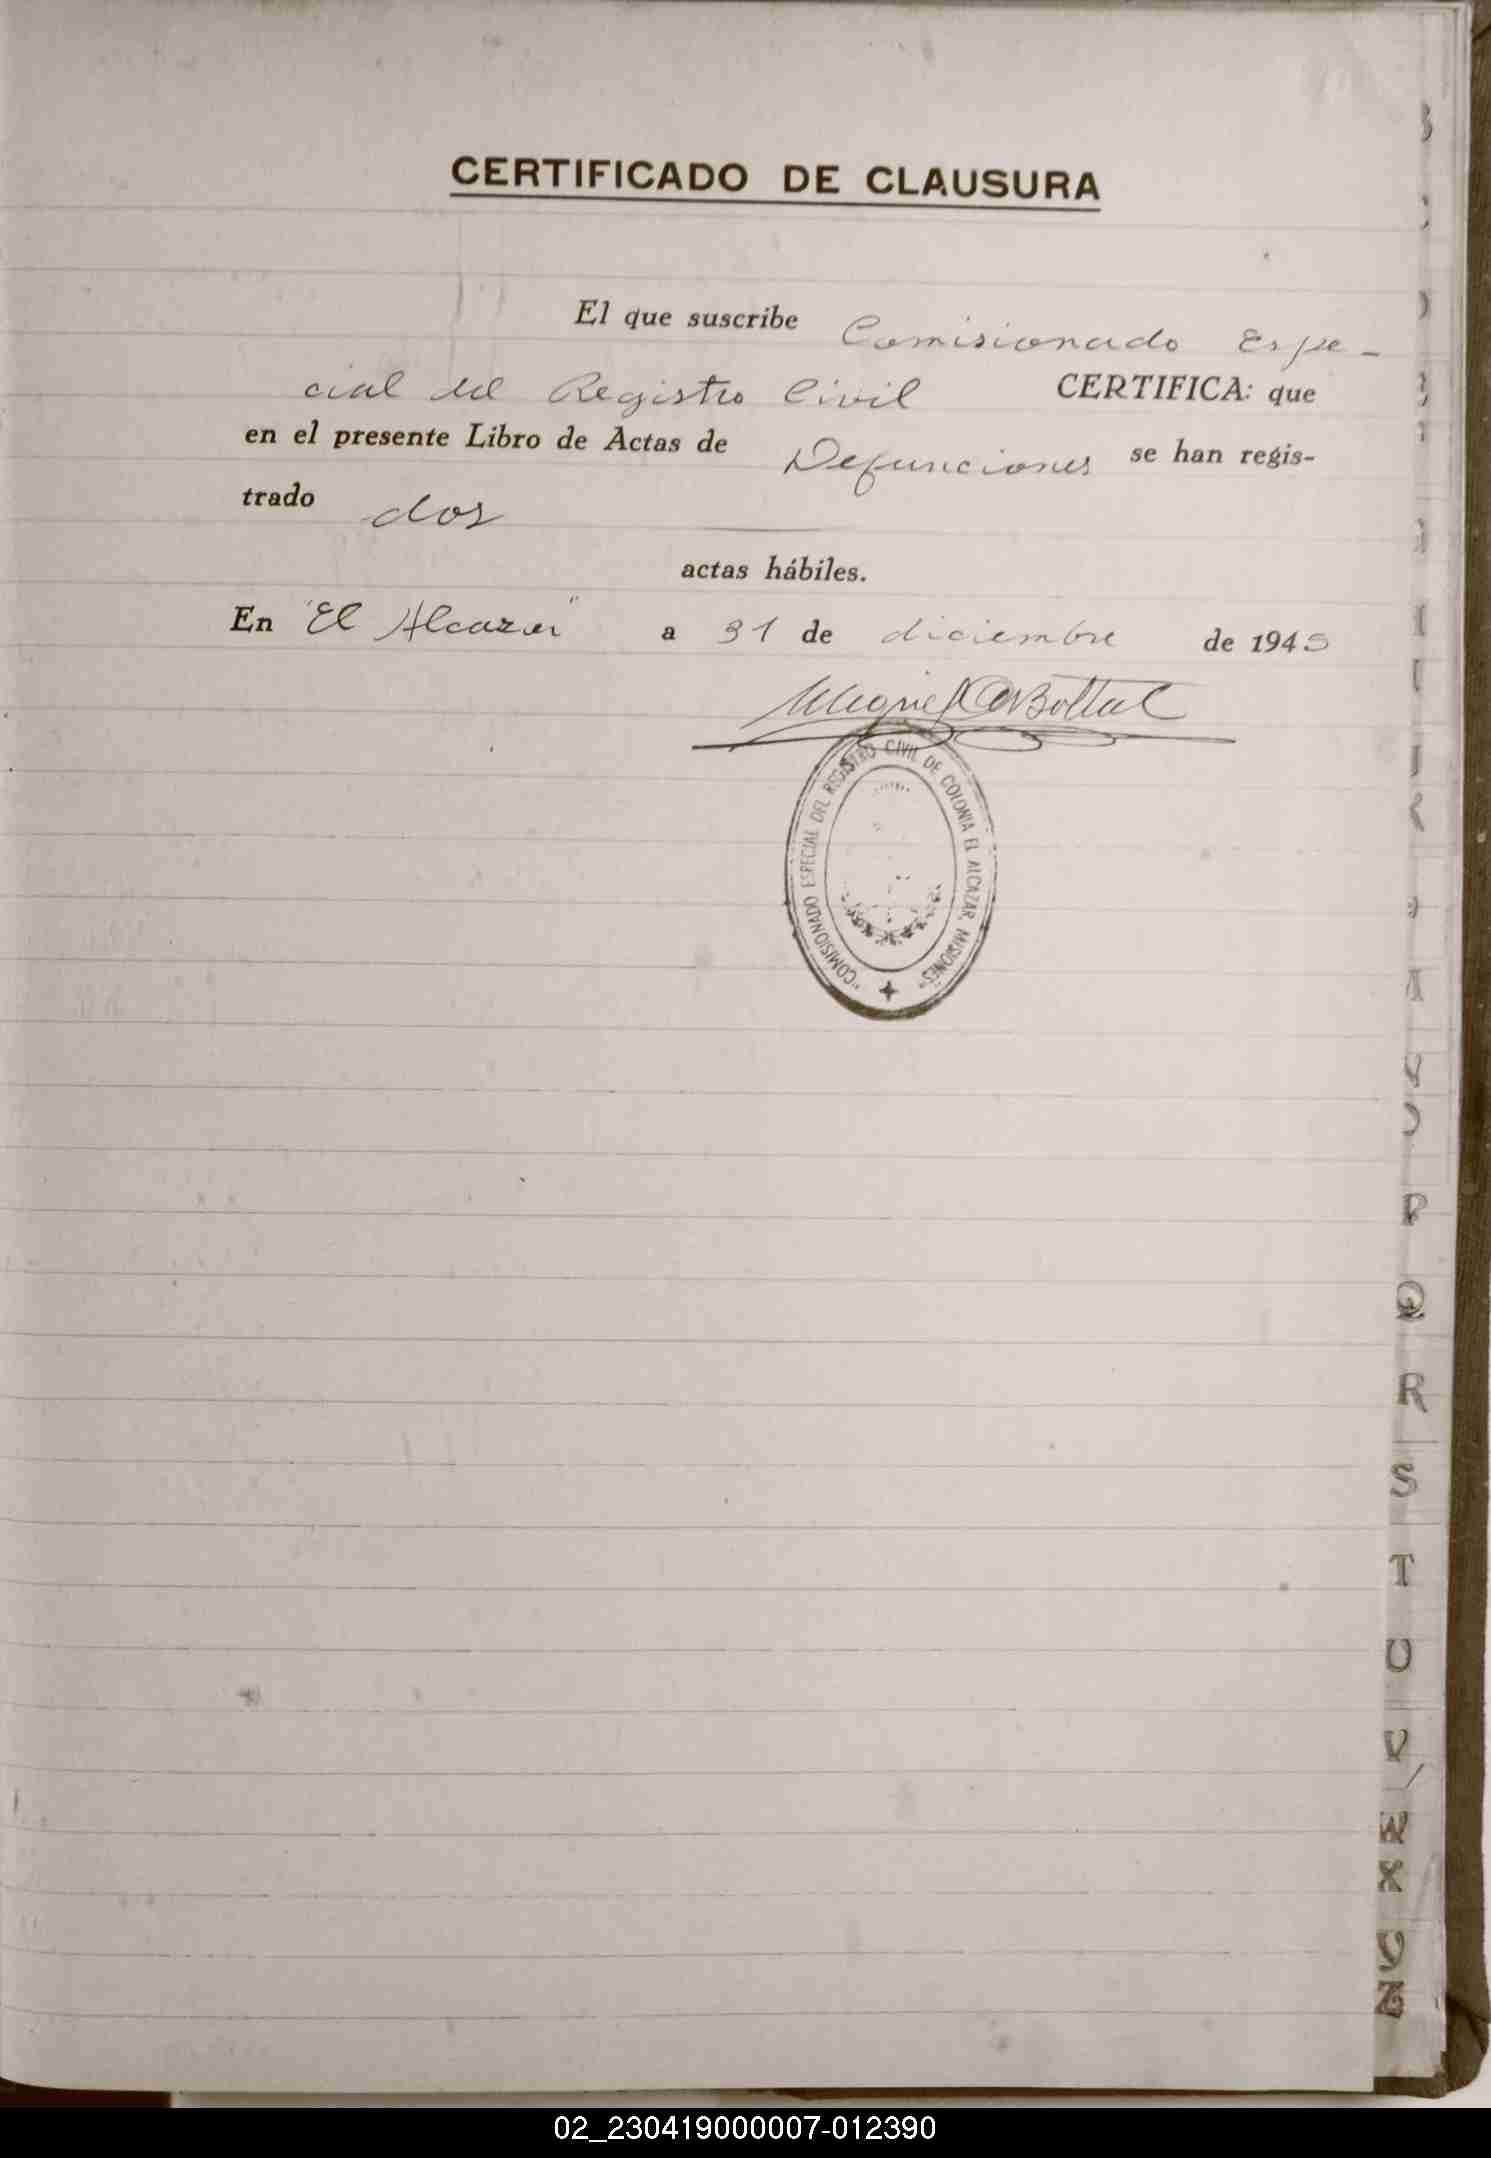 CERTIFICADO DE CLAUSURA
El que suscribe Comisionado Espe-
cial del Registro Civil CERTIFICA: que
en el presente Libro de Actas de Defunciones se han regis-
trado dos
actas hábiles.
En "El Alcazar" a 31 de diciembre de 1945
Miguel
"COMISIONADO ESPECIAL DEL REGISTRO CIVIL DE COLONIA EL ALCAZAR, MISIONES"
P
Q
R
S
T
U
V
W
X
Z
02_230419000007-012390